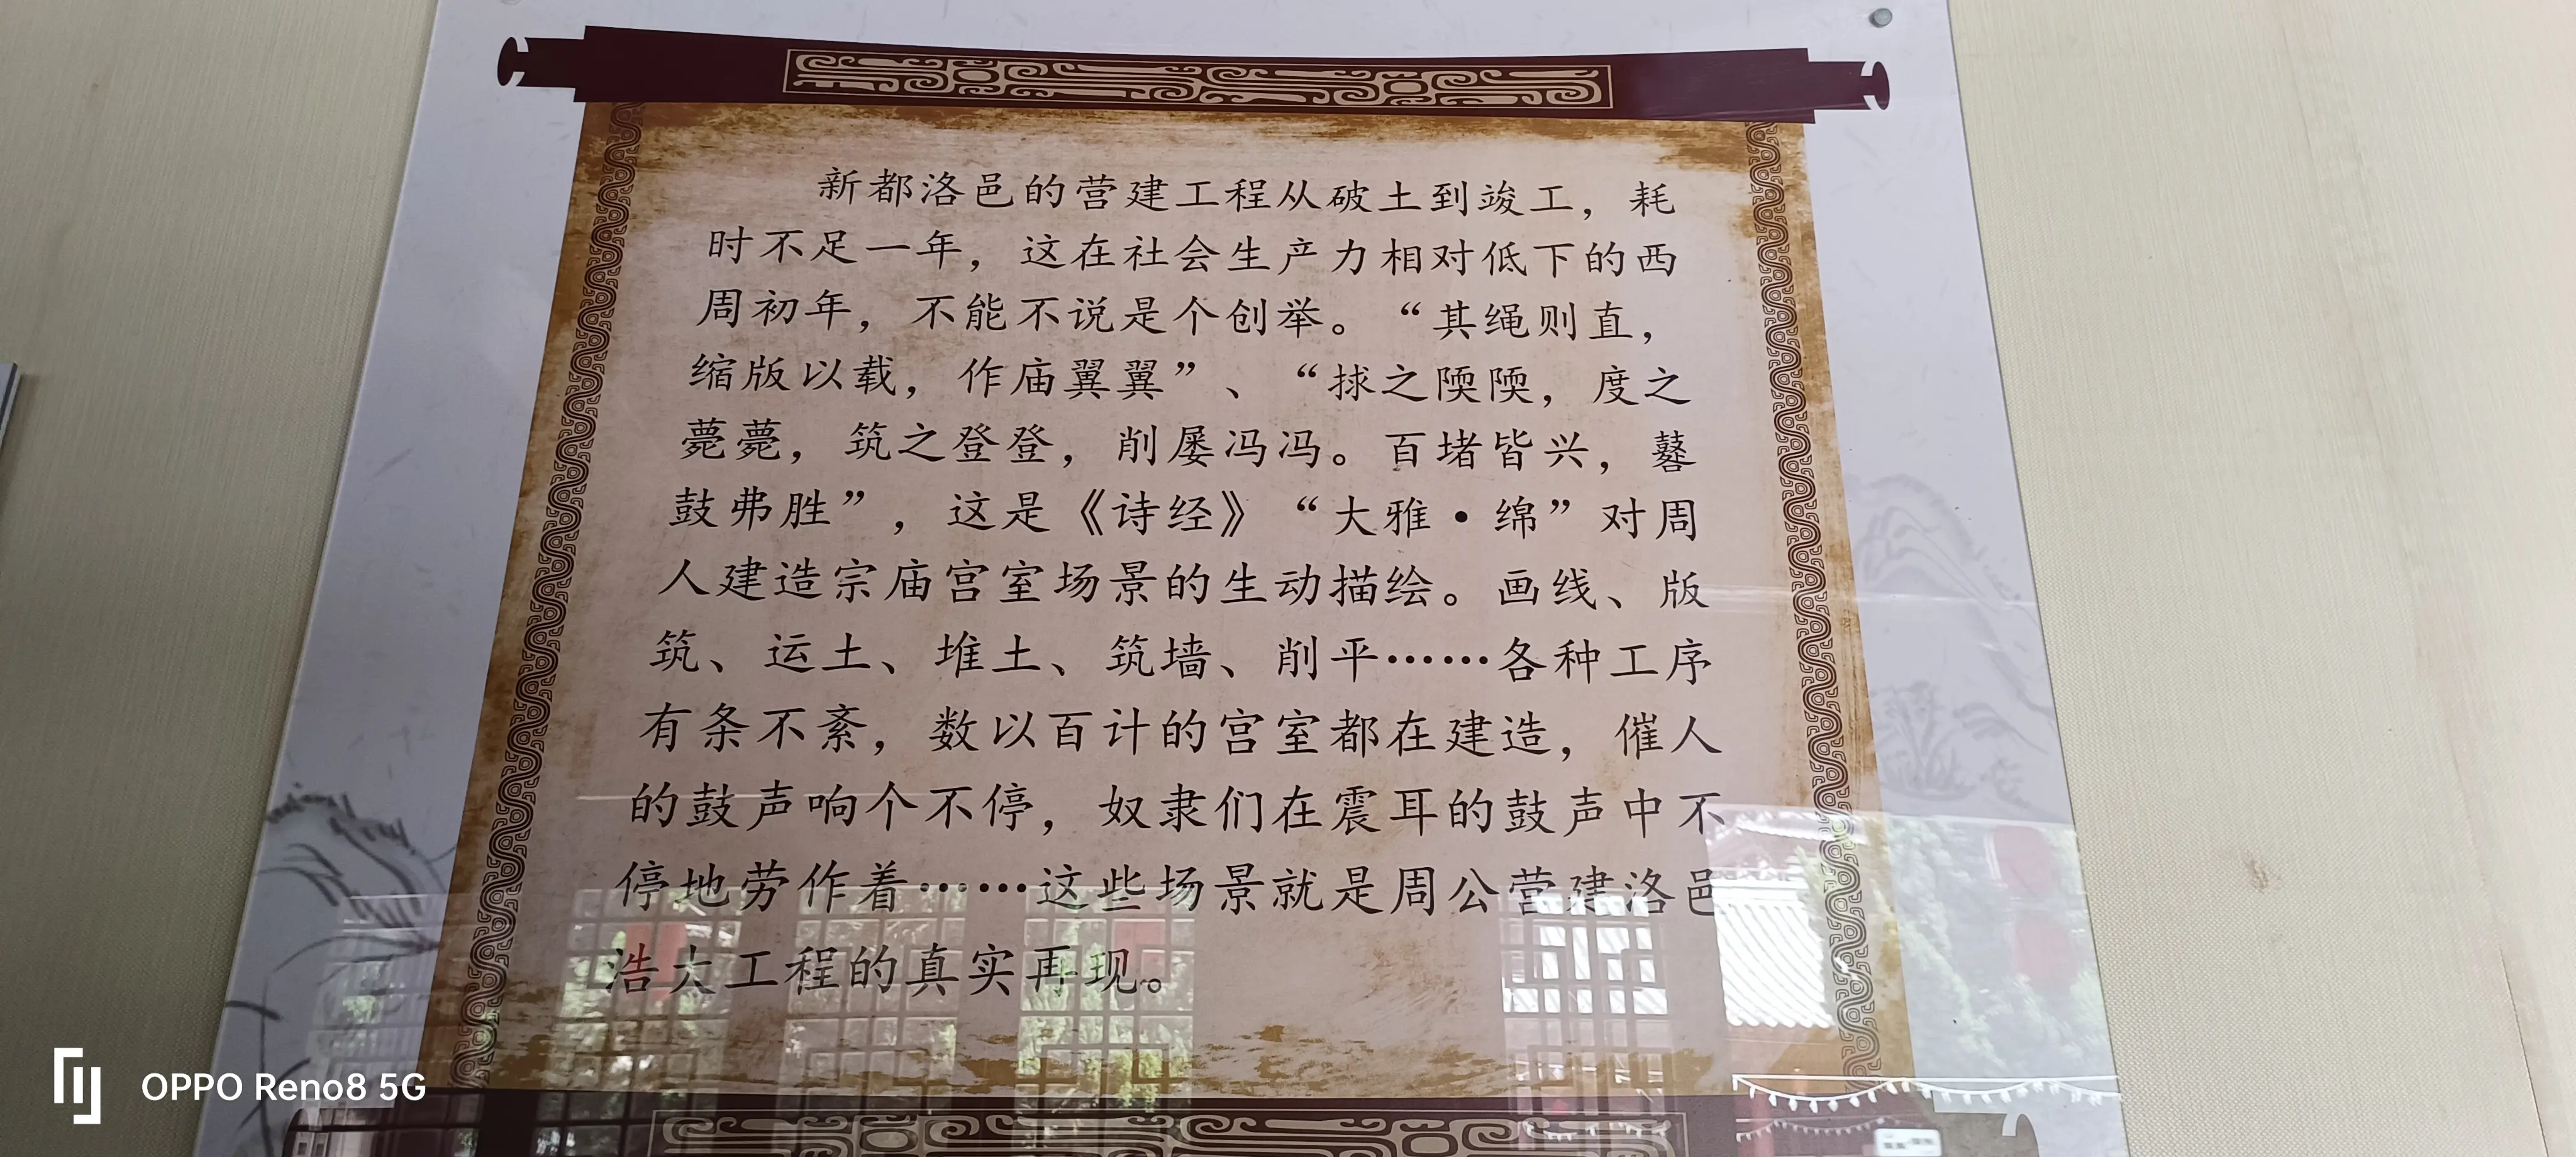 新都洛邑的营建工程从破土到竣工，耗
时不足一年，这在社会生产力相对低下的西
周初年，不能不说是个创举。“其绳则直，
缩版以载，作庙翼翼”、“捄之陾陾，度之
薨薨，筑之登登，削屡冯冯。百堵皆兴，鼛
鼓弗胜”，这是《诗经》“大雅·绵”对周
人建造宗庙宫室场景的生动描绘。画线、版
筑、运土、堆土、筑墙、削平……各种工序
有条不紊，数以百计的宫室都在建造，催人
的鼓声响个不停，奴隶们在震耳的鼓声中不
停地劳作着……这些场景就是周公营建洛邑
浩大工程的真实再现。
OPPO Reno8 5G